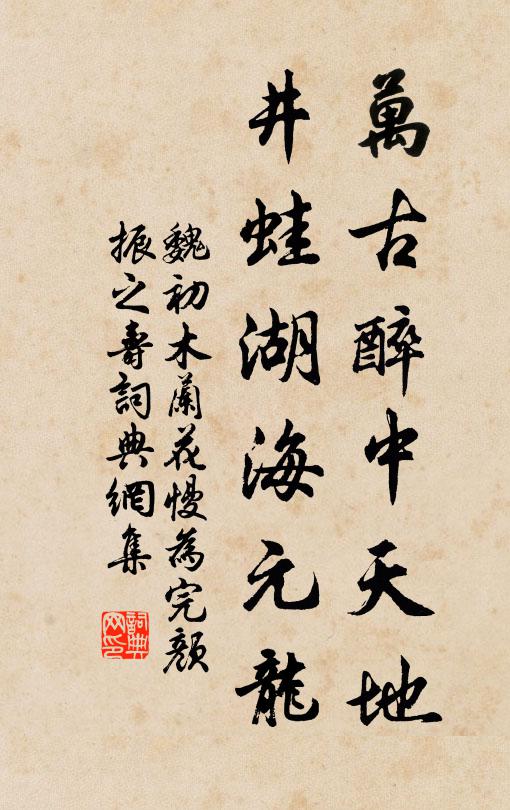 萬古醉中天地
井蛙湖海元龍
魏初木蘭花慢為完顏
振之壽詞典網集
詞典网印